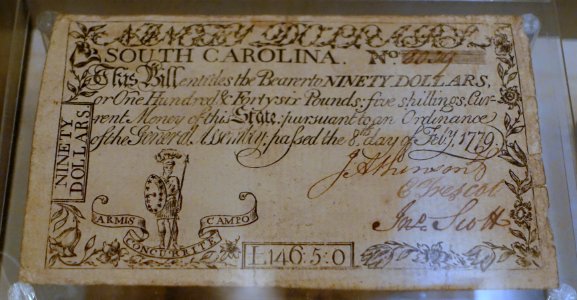 NINETY DOLLARS
SOUTH CAROLINA. No
This Bill entitles the Bearer to NINETY DOLLARS,
or One Hundred & Fortysix Pounds; five shillings, Cur-
rent Money of this State, pursuant to an Ordinance
of the General Assembly, passed the 8th day of Feby. 1779.
NINETY
DOLLARS
J Atkinson
E Trescot
Jno. Scott
ARMIS CAMPO
CONCURRITE
L146:5:0